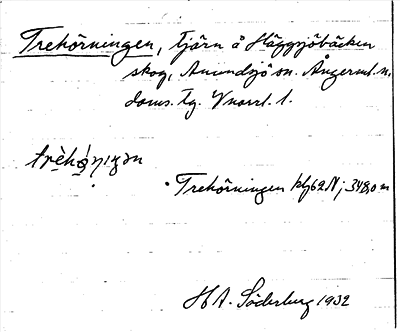 Trehörningen, tjärn å Häggsjöbäcken
skog, Anundsjö sn. Ångerml. n.
doms. tg. Vnorrl. l.
Trehörningen kbl 62 N; 348,0 m
H A. Söderberg 1932